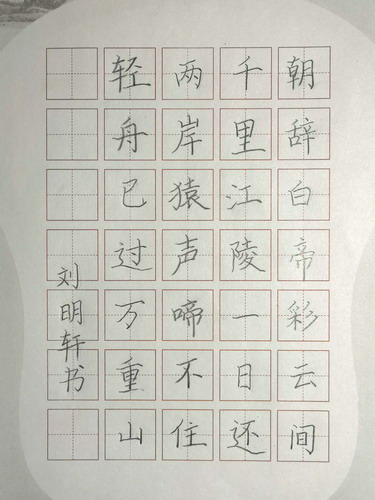 朝辞白帝彩云间
千里江陵一日还
两岸猿声啼不住
轻舟已过万重山
刘明轩书